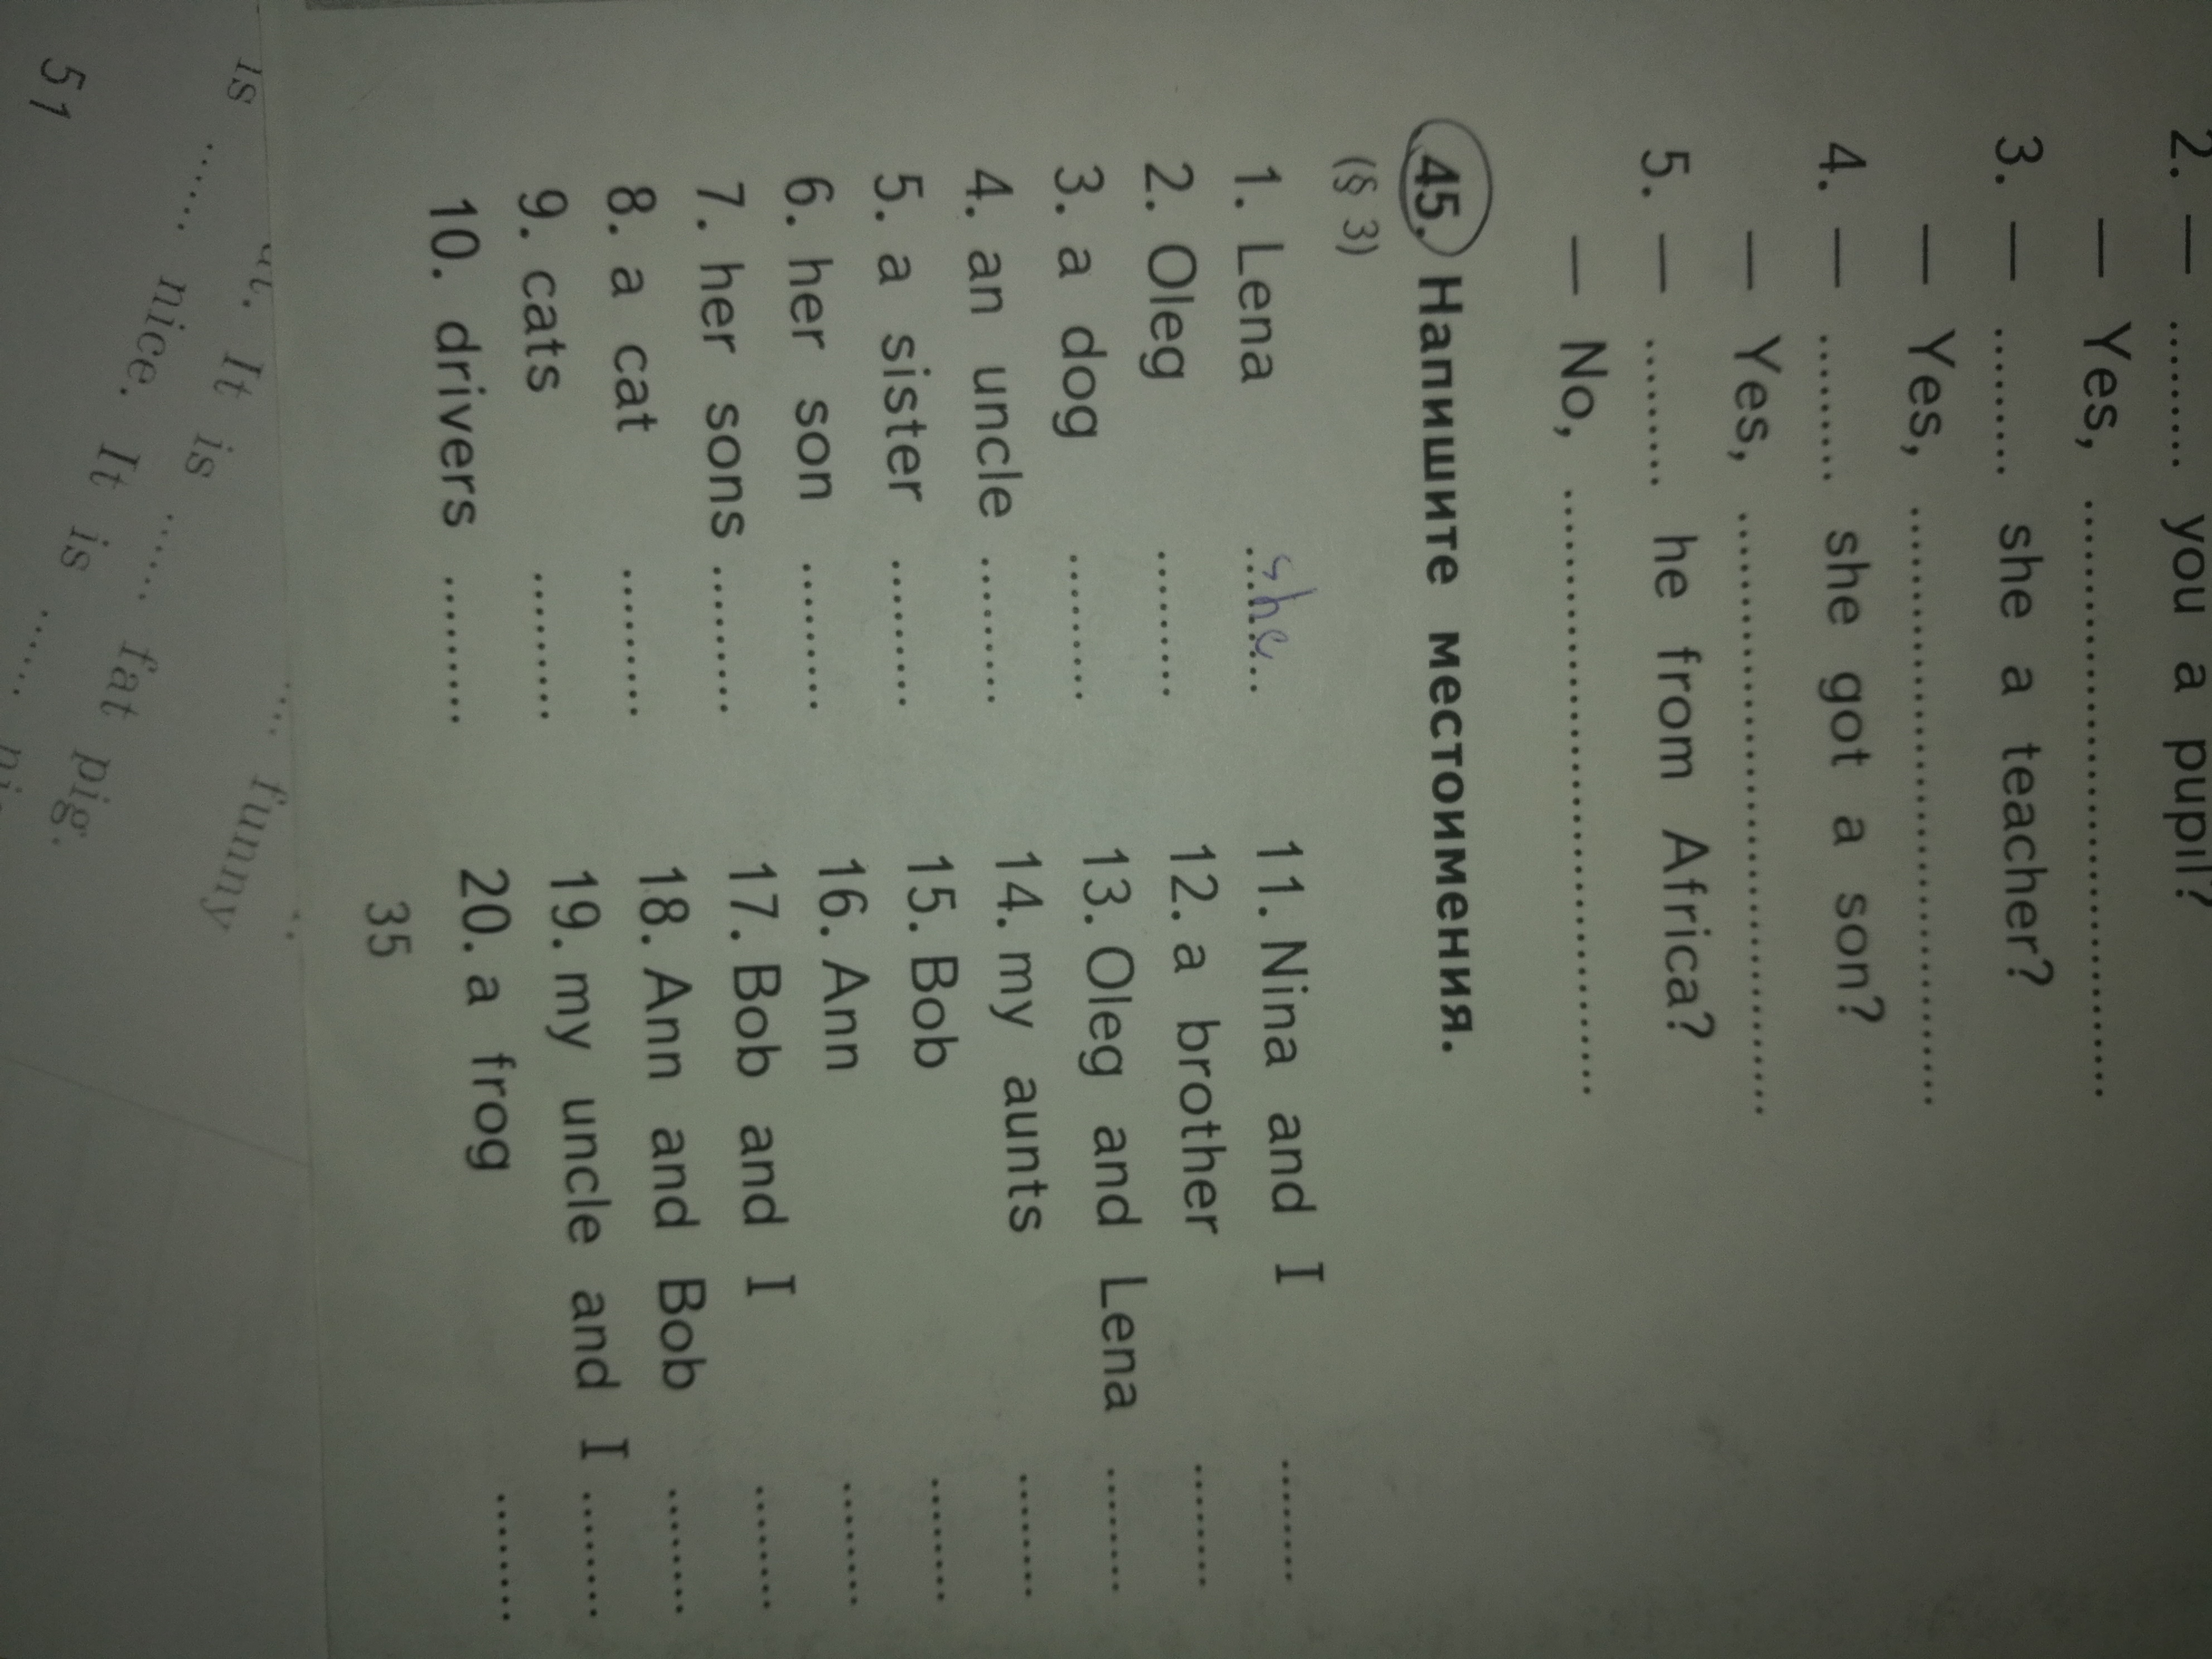 2. — ........ you a pupil?
— Yes, ..............................
3. — ........ she a teacher?
— Yes, ..............................
4. — ........ she got a son?
— Yes, ..............................
5. — ........ he from Africa?
— No, ..............................
45. Напишите местоимения.
(§ 3)
1. Lena she
2. Oleg ........
3. a dog ........
4. an uncle ........
5. a sister ........
6. her son ........
7. her sons ........
8. a cat ........
9. cats ........
10. drivers ........
11. Nina and I ........
12. a brother ........
13. Oleg and Lena ........
14. my aunts ........
15. Bob ........
16. Ann ........
17. Bob and I ........
18. Ann and Bob ........
19. my uncle and I ........
20. a frog ........
35
... funny
is It is ...... fat pig.
...... nice. It is ......
51